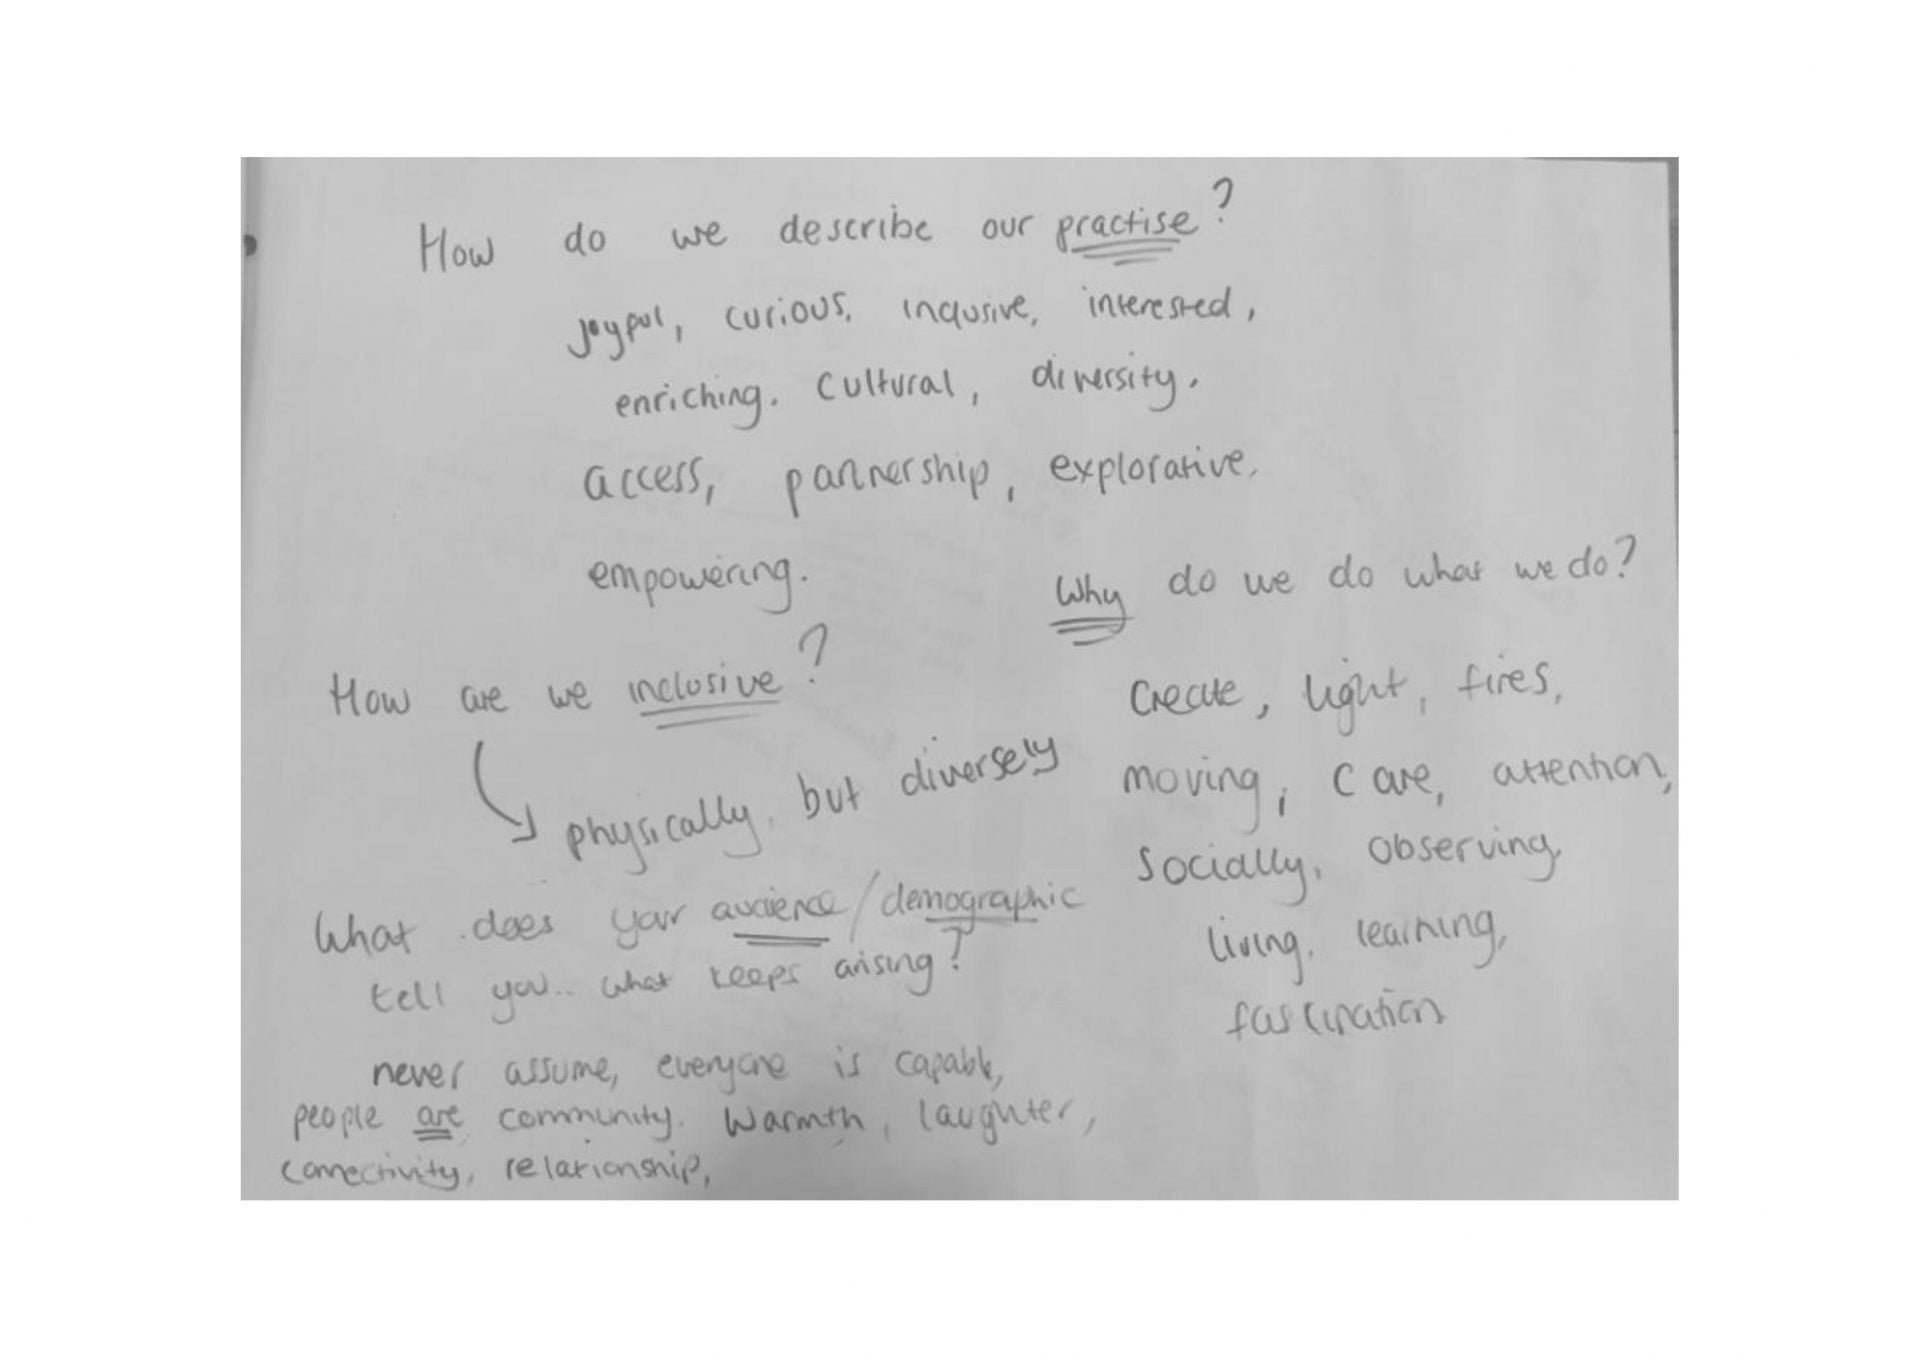 How do we describe our practise?
joyful, curious, inclusive, interested,
enriching. cultural, diversity.
access, partnership, explorative.
empowering.
Why do we do what we do?
Create, light, fires,
moving, care, attention,
socially, observing,
living, learning,
fascination
How are we inclusive?
physically, but diversely
What does your audience/demographic
tell you.. what keeps arising?
never assume, everyone is capable,
people are community. Warmth, laughter,
connectivity, relationship,